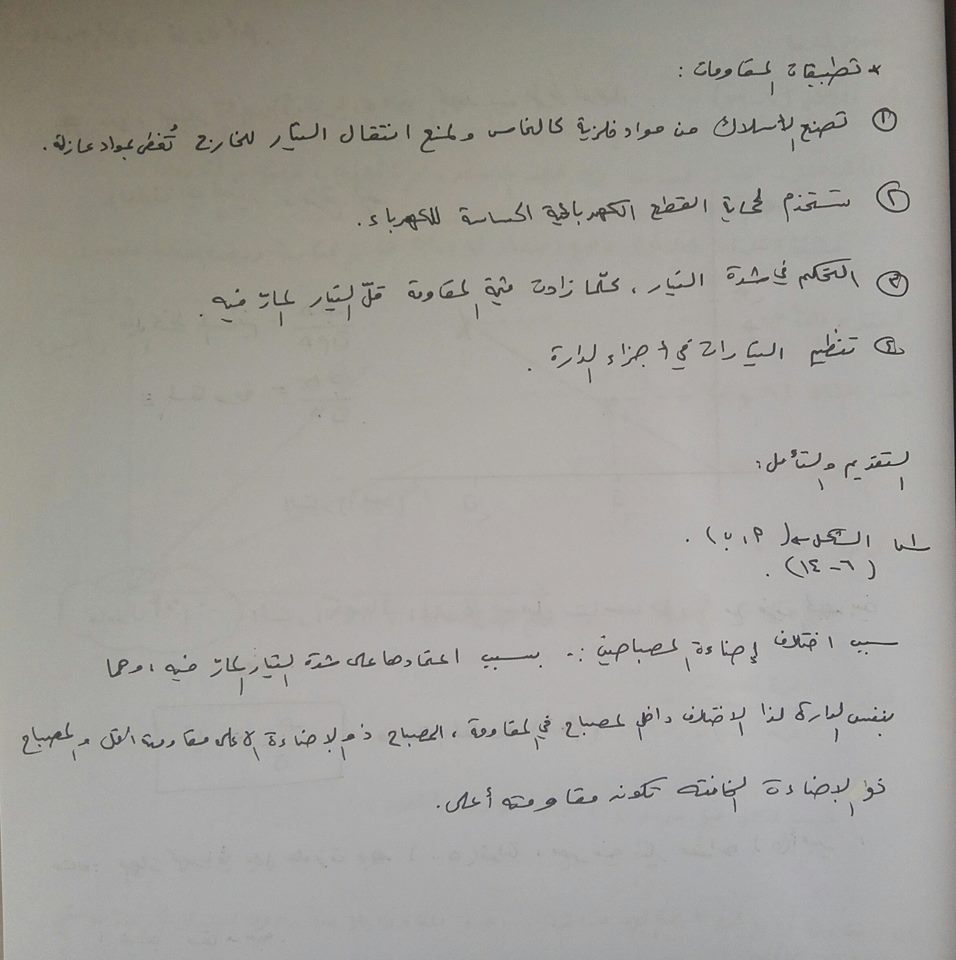 * تطبيقات المقاومات :
① تصنع الأسلاك من مواد فلزية كالنحاس ولمنع انتقال التيار للخارج تُغطى بمواد عازلة .
② تستخدم لحماية القطع الكهربائية الحساسة للكهرباء .
③ التحكم في شدة التيار ، كلّما زادت قيمة المقاومة قلّ التيار المارّ فيه .
④ تنظيم التيارات في أجزاء الدارة .
التقديم والتأمل :
الشكل ( أ ، ب ) .
( ٦ - ١٤ ) .
سبب اختلاف إضاءة المصباحين :- بسبب اعتمادها على شدة التيار المارّ فيه ، وهما
بنفس الدارة لذا الاختلاف داخل المصباح في المقاومة ، المصباح ذو الإضاءة الأعلى مقاومته أقل والمصباح
ذو الإضاءة الخافتة تكون مقاومته أعلى .